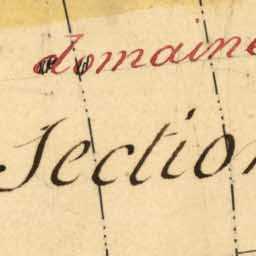 domaine
Section